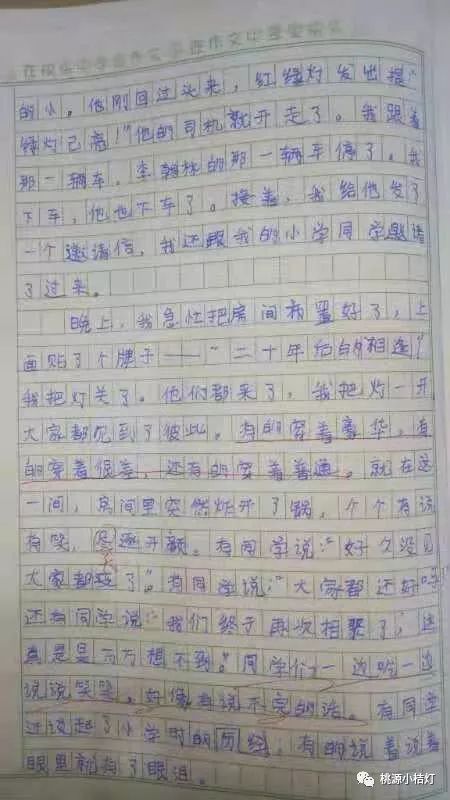 的小。他刚回过头来，红绿灯发出提:“
绿灯已亮!”他的司机就开走了。我跟着
那一辆车。李翰林的那一辆车停了。我
下车，他也下车了。接着，我给他发了
一个邀请信，我还跟我的小学同学邀请
了过来。
晚上，我急忙把房间布置好了，上
面贴了个牌子——“二十年后的相逢”
我把灯关了。他们都来了，我把灯一开
大家都见到了彼此。有的穿着豪华，有
的穿着很差，还有的穿着普通。就在这
一间，房间里突然炸开了锅，个个有说
有笑，逐开颜。有同学说:“好久没见
大家都变了”。有同学说:“大家都还好吗?
还有同学说:“我们终于再次相聚了，这
真是万万想不到。”同学们一边吃一边
说说笑笑。好像有说不完的话。有同学
还谈起了小学时的历经；有的说着说着
眼里就有了眼泪。
桃源小桔灯